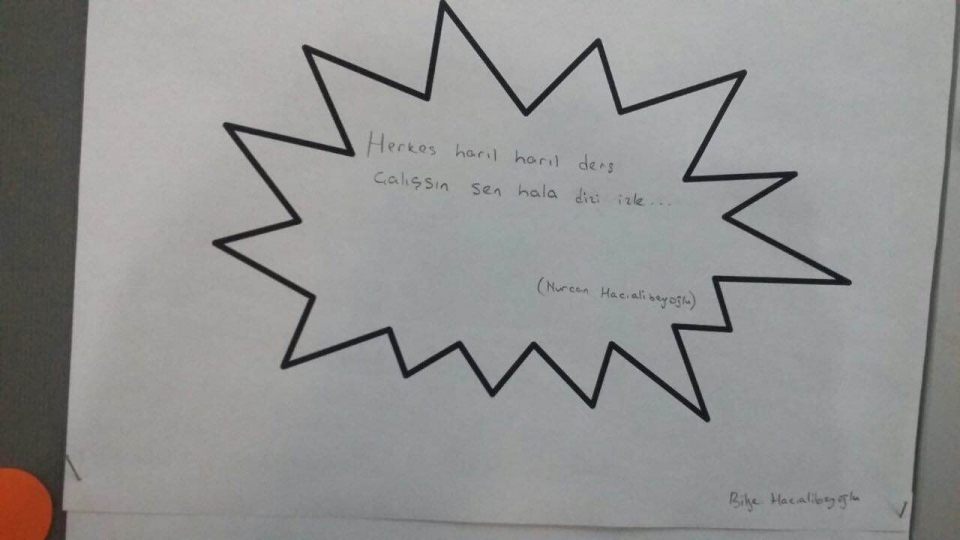 Herkes harıl harıl ders
Çalışsın sen hala dizi izle...
(Nurcan Hacıalibeyoğlu)
Bilge Hacıalibeyoğlu